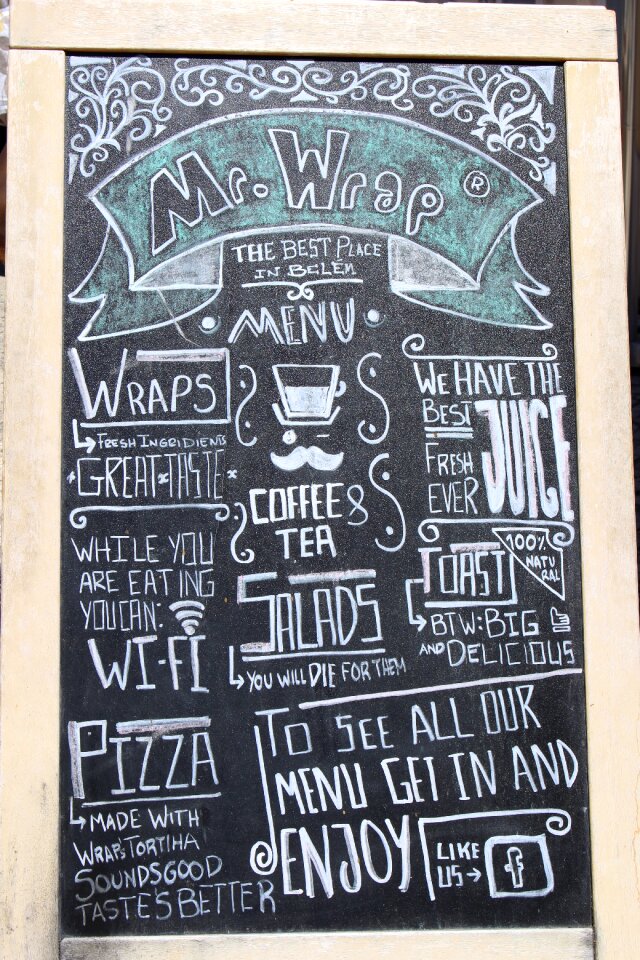 Mr. Wrap ®
THE BEST PLACE
IN BELÉM
MENU
WRAPS
FRESH INGRIDIENTS
GREAT TASTE
WHILE YOU
ARE EATING
YOU CAN:
WI-FI
PIZZA
MADE WITH
WRAP'S TORTIHA
SOUNDS GOOD
TASTE'S BETTER
COFFEE &
TEA
SALADS
YOU WILL DIE FOR THEM
WE HAVE THE
BEST
JUICE
FRESH
EVER
100%
NATU
RAL
TOAST
BTW: BIG
AND DELICIOUS
TO SEE ALL OUR
MENU GET IN AND
ENJOY
LIKE
US
f